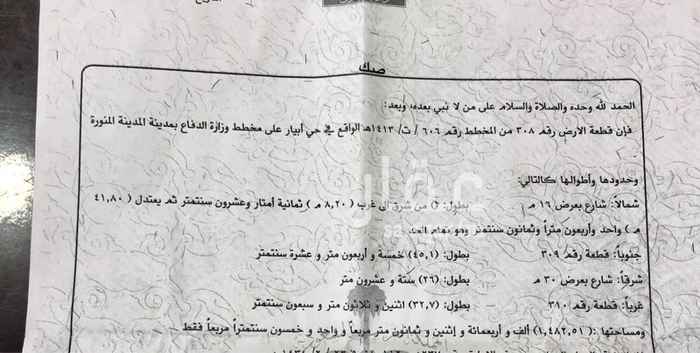 صك
الحمد لله وحده والصلاة والسلام على من لا نبي بعده، وبعد:
فإن قطعة الارض رقم ٣٠٨ من المخطط رقم ٦٠٦ / ت / ١٤١٣هـ الواقع في حي أبيار على مخطط وزارة الدفاع بمدينة المدينة المنورة
وحدودها وأطوالها كالتالي:
شمالاً: شارع بعرض ١٦ م بطول: من شرق الى غرب ( ٨,٢٠ م ) ثمانية أمتار وعشرون سنتمتر ثم يعتدل ( ٤١,٨٠
م ) واحد وأربعون متراً وثمانون سنتمتر وهو تمام الحد
جنوباً: قطعة رقم ٣٠٩ بطول: (٤٥,١) خمسة و أربعون متر و عشرة سنتمتر
شرقاً: شارع بعرض ٣٠ م بطول: (٢٦) ستة و عشرون متر
غرباً: قطعة رقم ٣١٠ بطول: (٣٢,٧) اثنين و ثلاثون متر و سبعون سنتمتر
ومساحتها :( ١,٤٨٢,٥١) ألف و أربعمائة و إثنين و ثمانون متر مربعاً و واحد و خمسون سنتمتراً مربعاً فقط
عقار